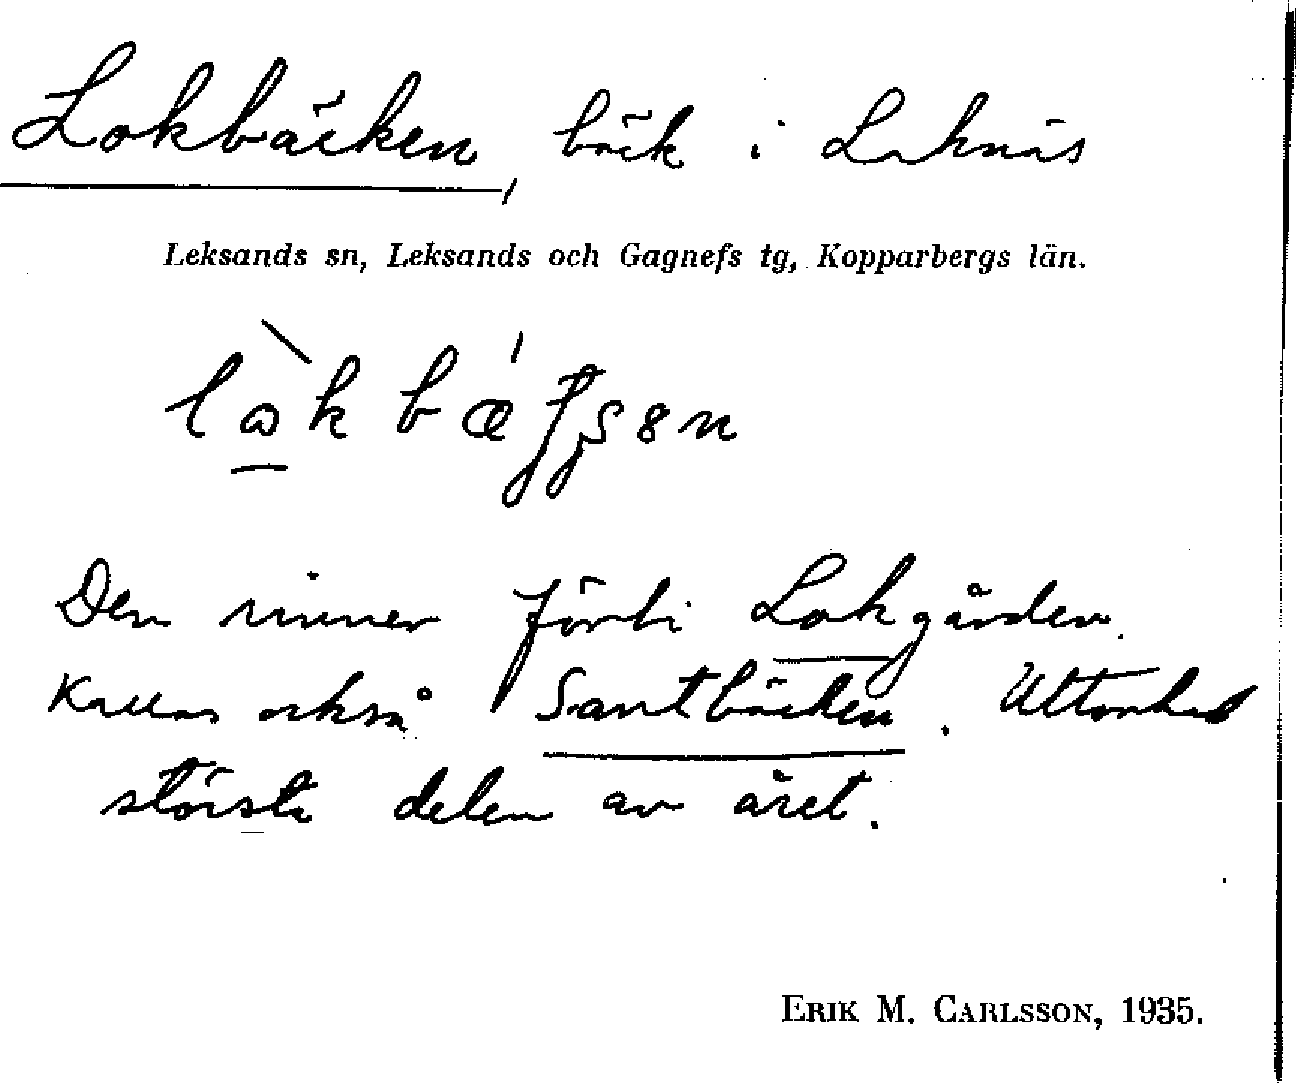 Lokbäcken, bäck i Laknäs
Leksands sn, Leksands och Gagnefs tg, Kopparbergs län.
Den rinner förbi Lokgården.
Kallas också Santbäcken. Uttorkad
största delen av året.
ERIK M. CARLSSON, 1935.